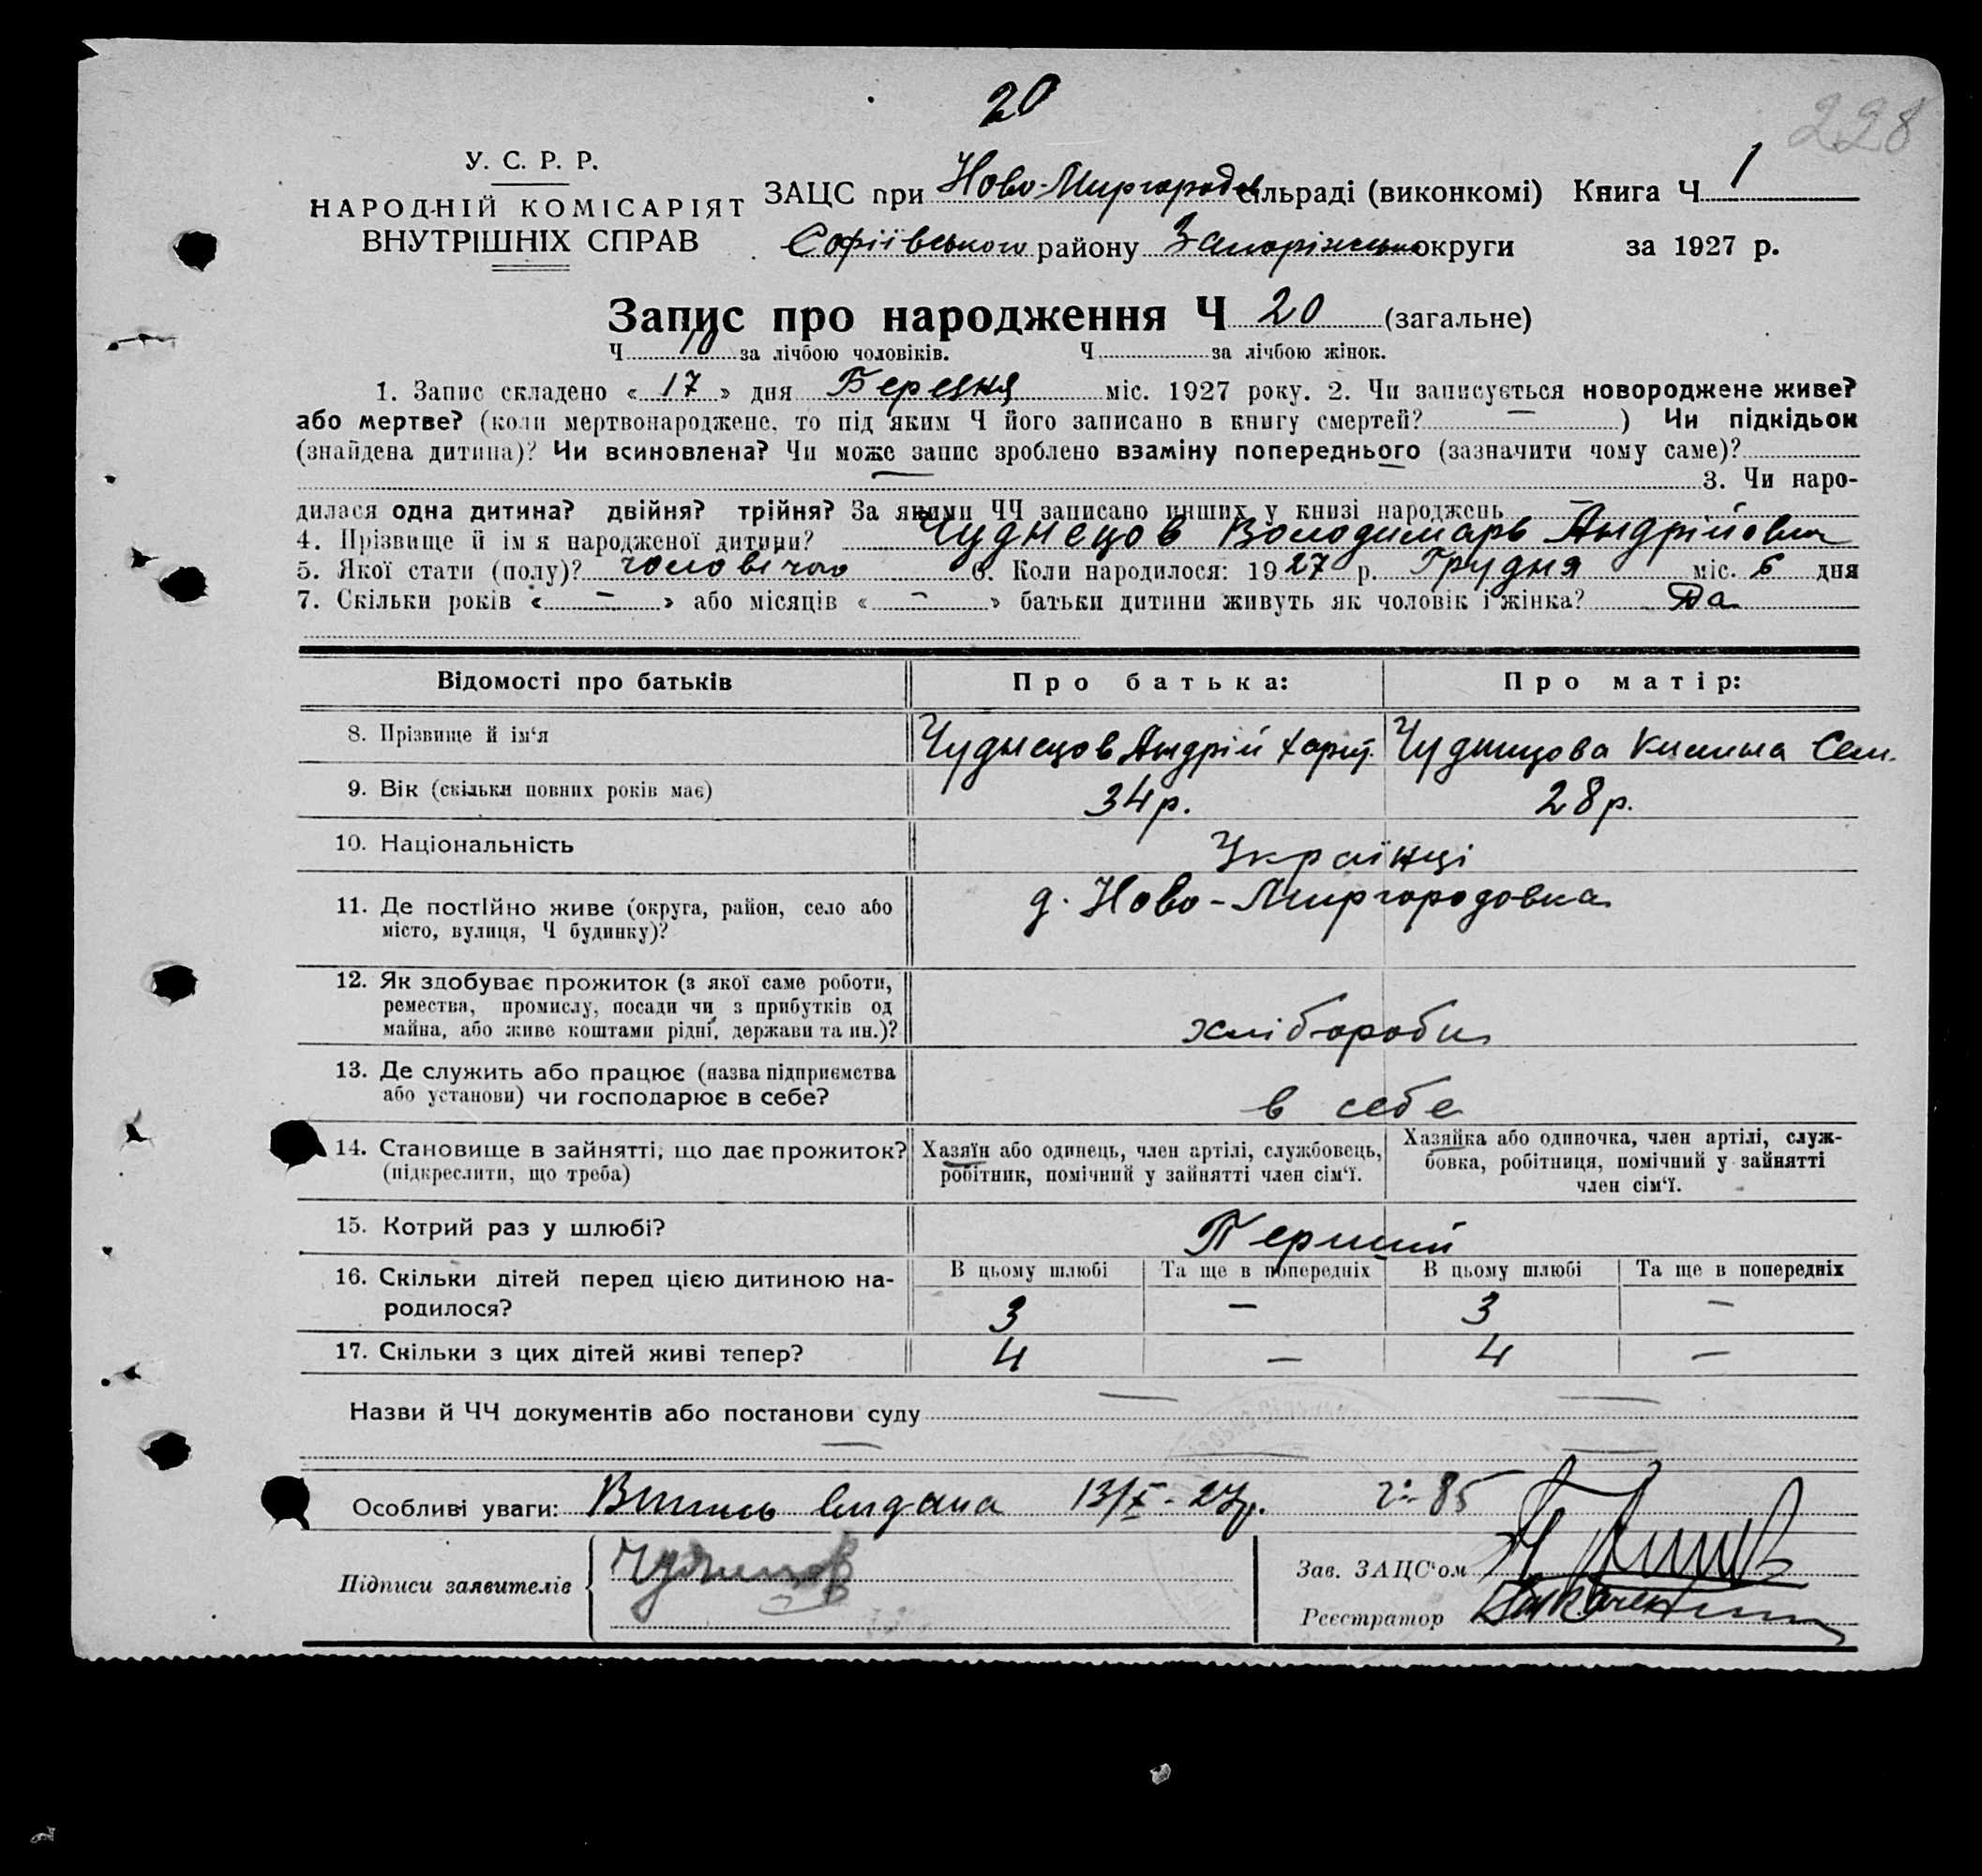 20
228
У. С. Р. Р.
НАРОДНІЙ КОМІСАРІЯТ
ВНУТРІШНІХ СПРАВ
ЗАЦС при Ново-Миргородів сільраді (виконкомі) Книга Ч 1
Софіївського району Запоріжсько округи за 1927 р.
Запис про народження Ч 20 (загальне)
Ч 10 за лічбою чоловіків. Ч за лічбою жінок.
1. Запис складено « 17 » дня Березня міс. 1927 року. 2. Чи записується новороджене живе?
або мертве? (коли мертвонароджене, то під яким Ч його записано в книгу смертей? — ) Чи підкідьок
(знайдена дитина)? Чи всиновлена? Чи може запис зроблено взаміну попереднього (зазначити чому саме)?
— 3. Чи наро-
дилася одна дитина? двійня? трійня? За якими ЧЧ записано инших у книзі народжень —
4. Прізвище й ім я народженої дитини? Чуднецов Володимарь Андрійович
5. Якої стати (полу)? чоловічого 6. Коли народилося: 1927 р. Грудня міс. 6 дня
7. Скільки років « — » або місяців « — » батьки дитини живуть як чоловік і жінка? Да
Відомості про батьків Про батька: Про матір:
8. Прізвище й ім‘я Чуднецов Андрій Харит. Чуднецова Килина Сем.
9. Вік (скільки повних років має) 34 р. 28 р.
10. Національність Українці
11. Де постійно живе (округа, район, село або д. Ново-Миргородовка
місто, вулиця, Ч будинку)?
12. Як здобуває прожиток (з якої саме роботи,
ремества, промислу, посади чи з прибутків од
майна, або живе коштами рідні, держави та ин.)? хлібороби
13. Де служить або працює (назва підприємства
або установи) чи господарює в себе? в себе
14. Становище в зайнятті, що дає прожиток? Хазяїн або одинець, член артілі, службовець, Хазяйка або одиночка, член артілі, служ-
(підкреслити, що треба) робітник, помічний у зайнятті член сім‘ї. бовка, робітниця, помічний у зайнятті
член сім‘ї.
15. Котрий раз у шлюбі? Перший
16. Скільки дітей перед цією дитиною на- В цьому шлюбі Та ще в попередніх В цьому шлюбі Та ще в попередніх
родилося? 3 — 3 —
17. Скільки з цих дітей живі тепер? 4 — 4 —
Назви й ЧЧ документів або постанови суду
Особливі уваги: Випись видана 13/X-27р. 85
Підписи заявителів
Зав. ЗАЦС‘ом
Реєстратор